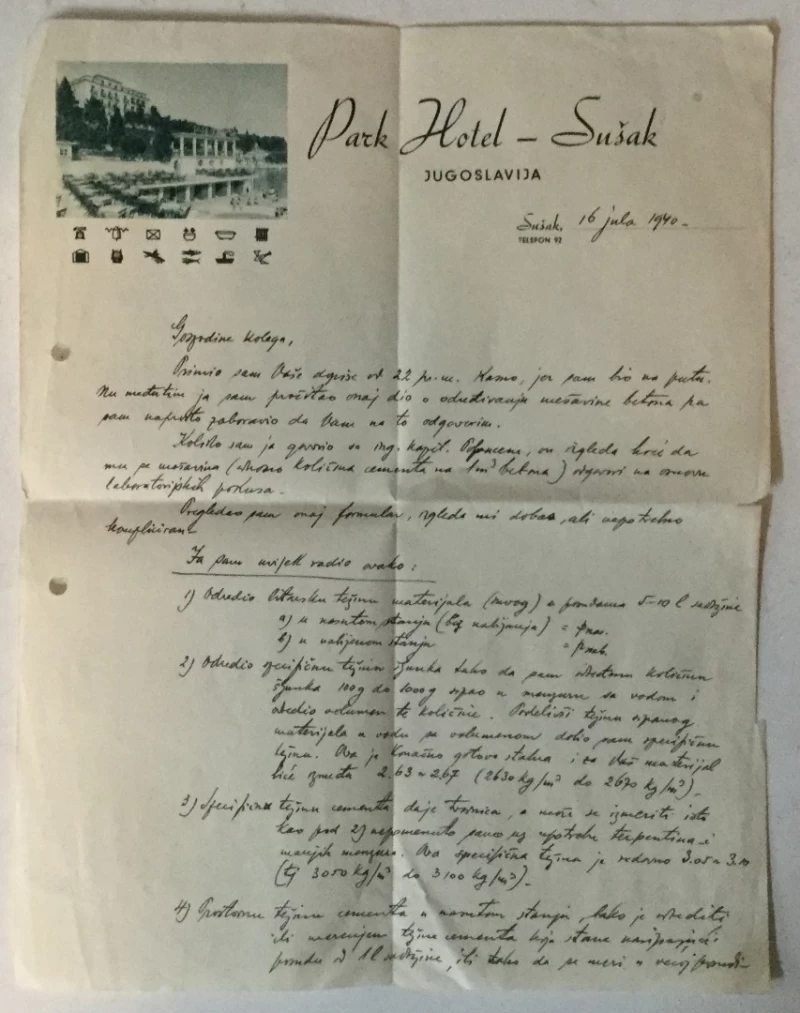 Park Hotel – Sušak
JUGOSLAVIJA
Sušak, 16 jula 1940 –
TELEFON 92
Gospodine Kolega,
Primio sam Vaše od 22 pr. m. kasno, jer sam bio na putu.
No međutim ja sam pročitao onaj dio o određivanju mešavine betona pa
sam naprosto zaboravio da Vam na to odgovorim.
Koliko sam ja govorio sa ing. kapit. on izgleda hoće da
mu se mešavina (odnosno količina cementa na 1m³ betona) odgovori na osnovu
laboratorijskih pokusa.
Pregledao sam onaj formular, izgleda mi dobar, ali nepotrebno
kompliciran.
Ja sam uvijek radio ovako:
1) Odredio litarsku težinu materijala (suvog) u posudama 5–10 l sadržine
a) u nasutom stanju (bez nabijanja) = pnas.
b) u nabijenom stanju = pnab.
2) Odredio specifičnu težinu šljunka tako da sam količinu
šljunka 100g do 1000g sipao u menzuru sa vodom i
odredio volumen te količine. Podelivši težinu sipanog
materijala u vodu sa volumenom dobio sam specifičnu
težinu. Ova je konačno gotovo stalna i za Vaš materijal
biće između 2.63 – 2.67 (2630 kg/m³ do 2670 kg/m³) –
3) Specifičnu težinu cementa daje tvornica, a može se izmeriti isto
kao pod 2) napomenuto samo uz upotrebu terpentina i
manjih menzura. Ova specifična težina je redovno 3.05 – 3.10
(tj 3050 kg/m³ do 3100 kg/m³) –
4) Prostornu težinu cementa u nasutom stanju, lako je odrediti
ili merenjem težine cementa koja stane
posudu od 1 l sadržine, ili tako da se meri u većoj posudi –